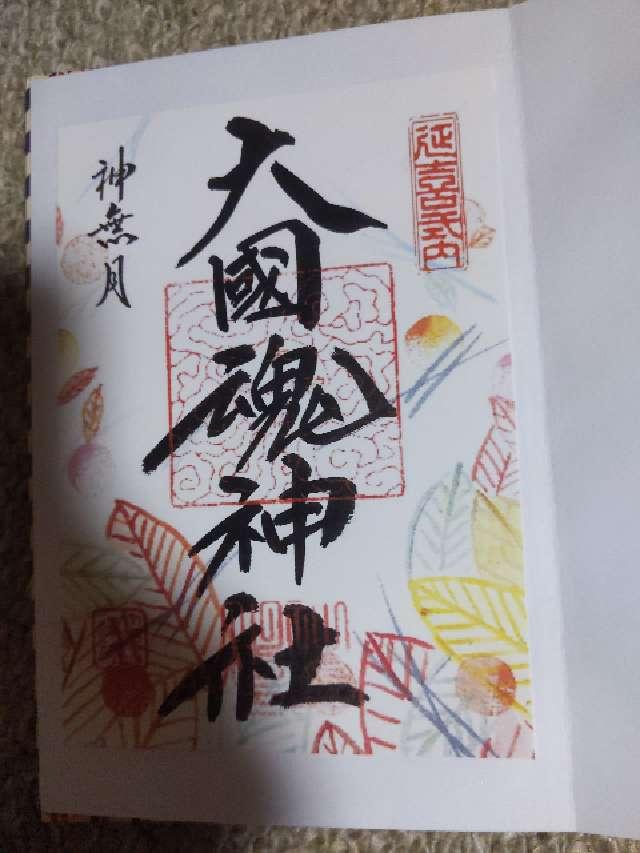 延喜式内
大國魂神社
神無月